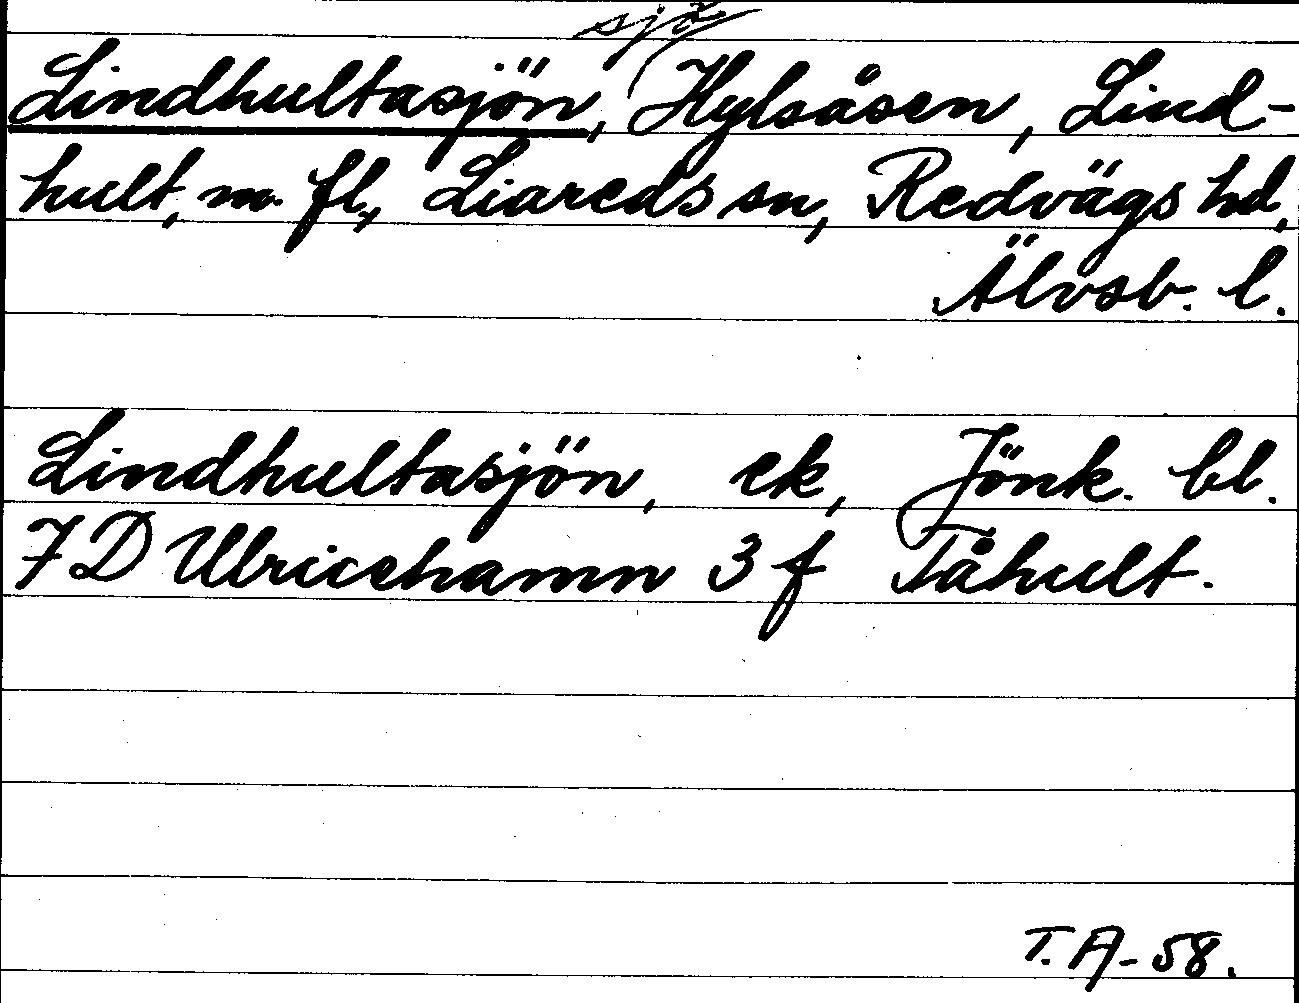 sjö
Lindhultasjön, Hylsåsen, Lind-
hult, m. fl., Liareds sn, Redvägs hd,
Älvsb. l.
Lindhultasjön, ek, Jönk. bl.
7D Ulricehamn 3 f Tåhult.
T. A-58.